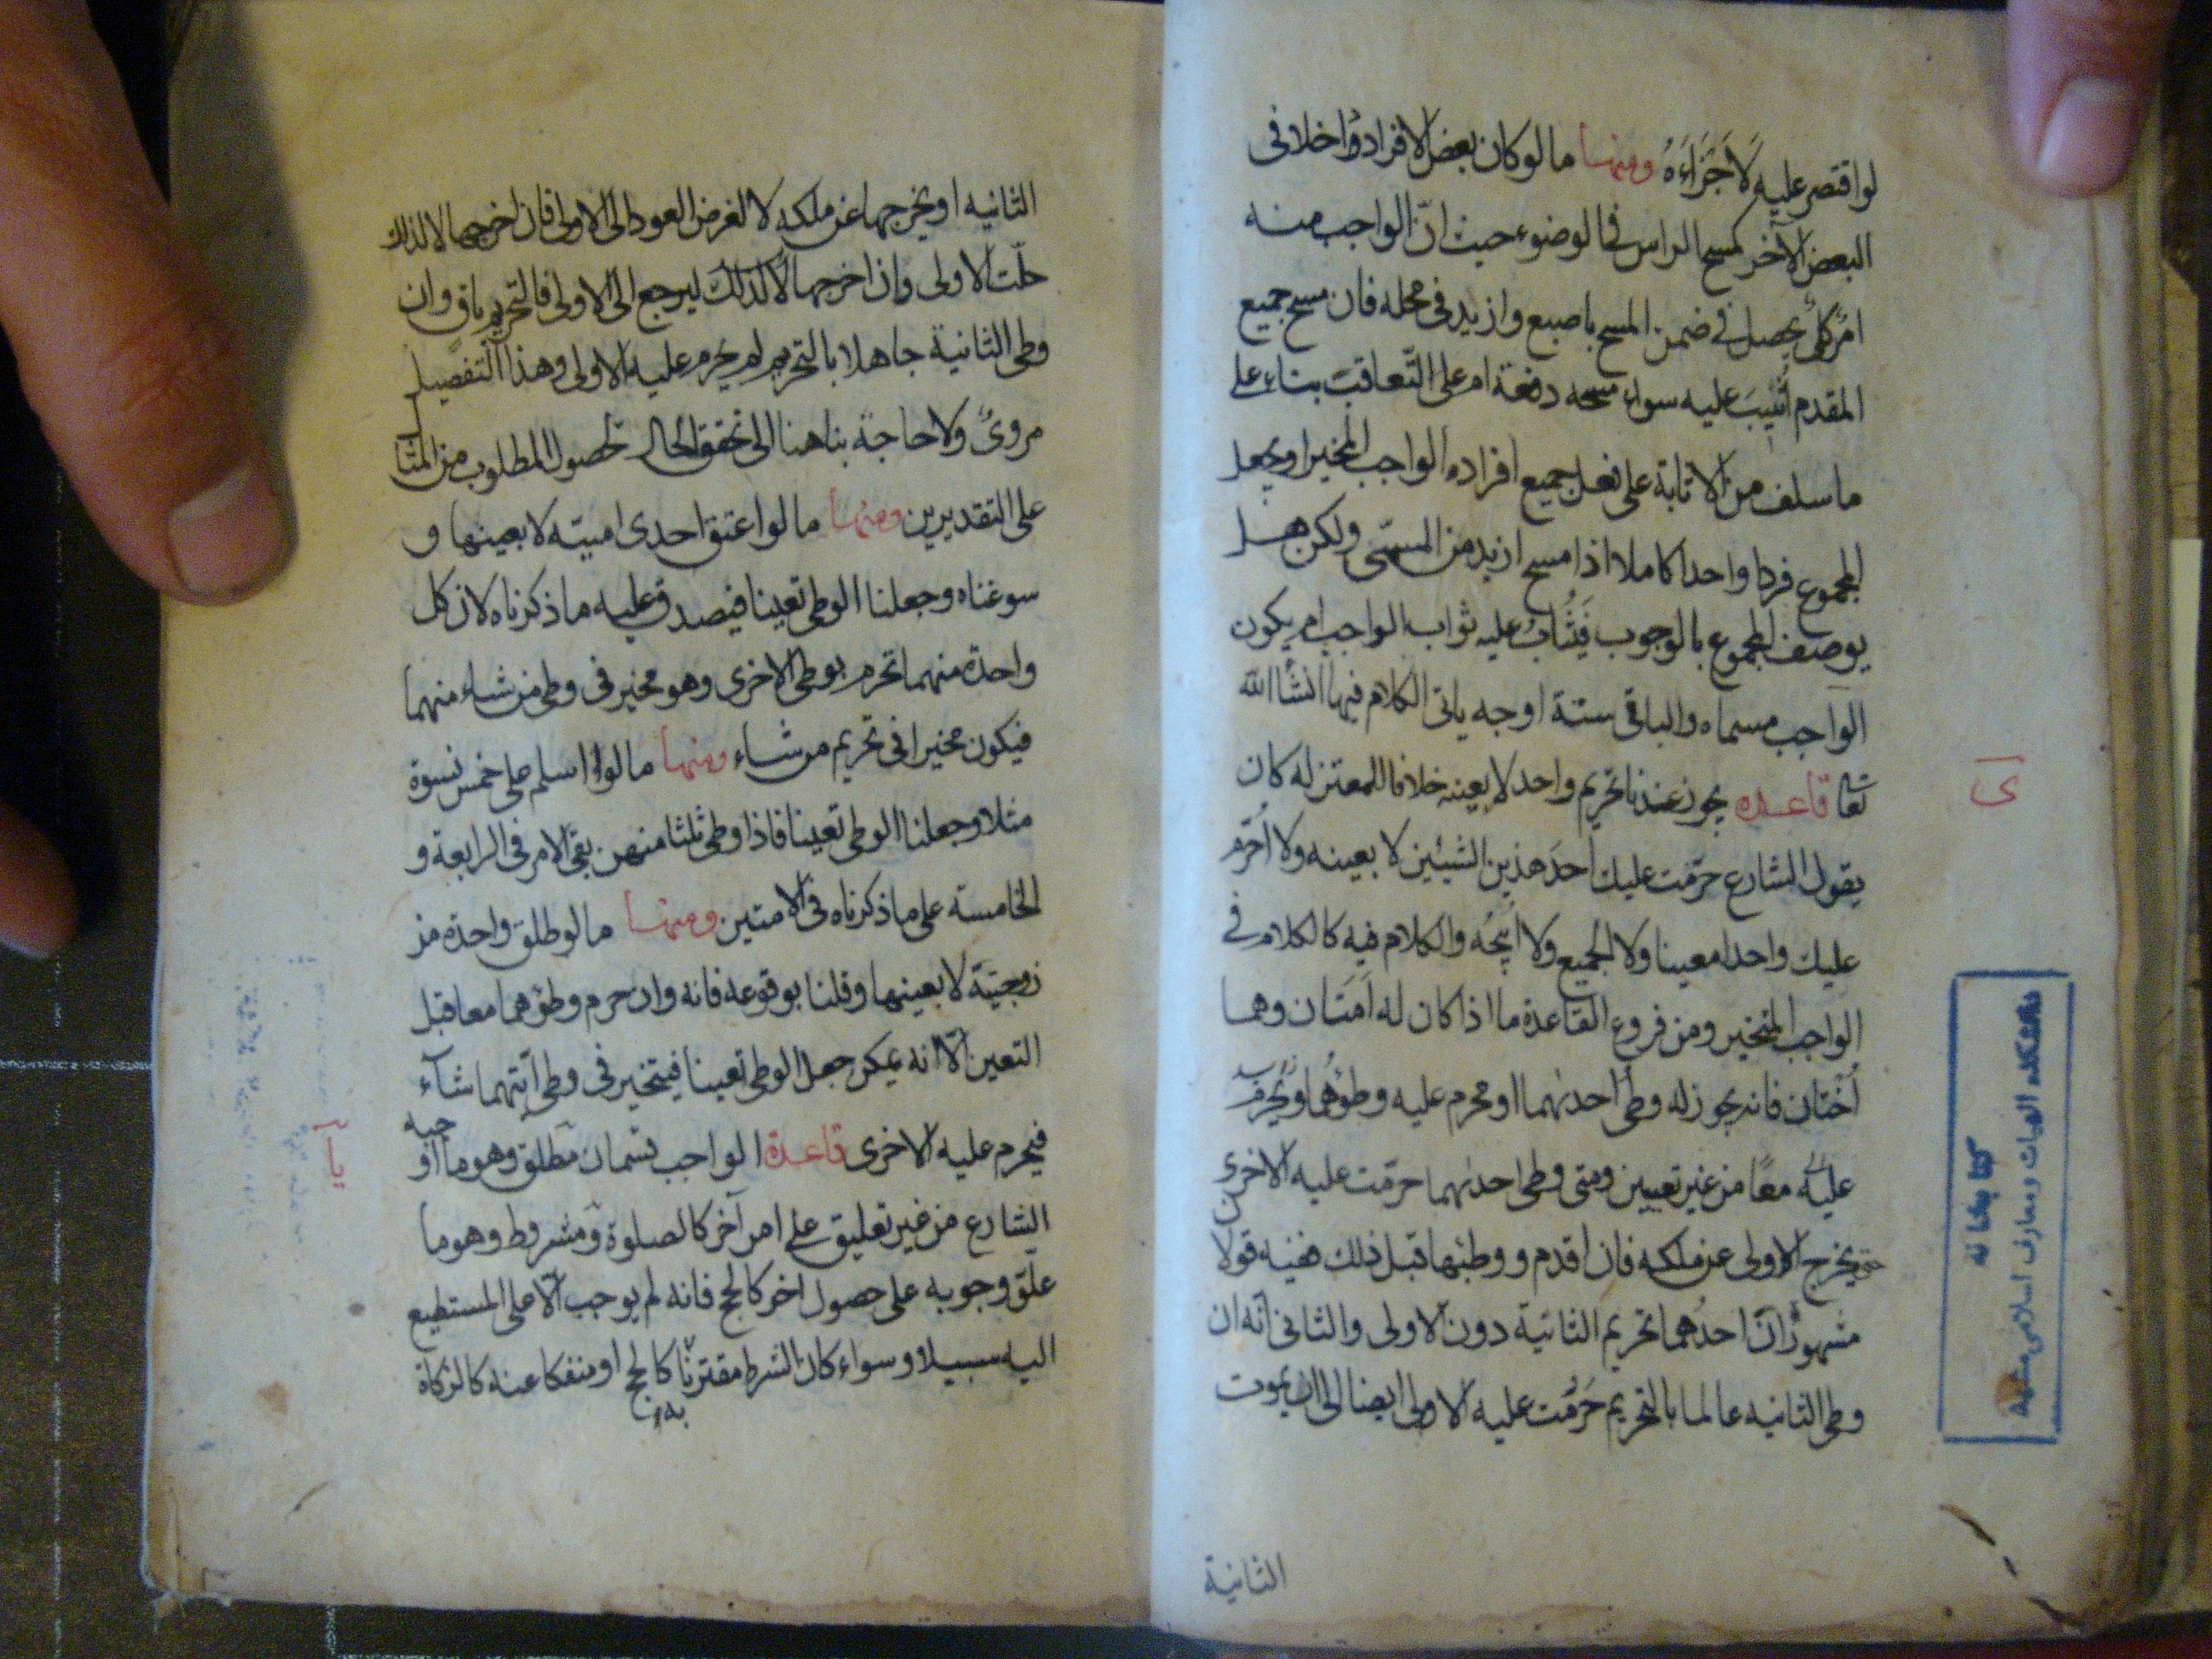 لو اقتصر عليه لاجزاءه ومنها ما لو كان بعض الافراد داخلا فى
البعض الآخر كمسح الراس فى الوضوء حيث انّ الواجب منه
امر كلى يحصل فى ضمن المسح باصبع وازيد فى محله فان مسح جميع
المقدم اُثيب عليه سواء مسحه دفعة ام على التّعاقب بناء على
ما سلف من الاثابة على فعل جميع افراده الواجب المخير او يجعل
المجموع فردا واحدا كاملا اذا مسح ازيد من المسمّى ولكن هل
يوصف المجموع بالوجوب فيُثاب عليه ثواب الواجب ام يكون
الواجب مسماه والباقى ستة اوجه ياتى الكلام فيها انشأالله
تعا قاعده يجوز عندنا تحريم واحد لا بعينه خلافا للمعتزله كان
يقول الشارع حرّمت عليك احد هذين الشيئين لا بعينه ولا اُحرّم
عليك واحدا معينا ولا الجميع ولا اُبيحُه والكلام فيه كالكلام فى
الواجب المخير ومن فروع القاعدة ما اذا كان له اَمَتان وهما
اُختان فانه يجوز له وطى احدٰيهما او محرم عليه وطؤهُما ويُحرم
عليه معًا من غير تعيين ومتى وطى احدٰيهما حرّمت عليه الاخرى
حتى يخرج الاولى عن ملكه فان اقدم ووطئها قبل ذلك ففيه قولا
ن
مشهوران احدُهما تحريم الثانية دون الاولى والثانى انّه ان
وطى الثانيه عالما بالتحريم حَرُمت عليه الاولى ايضا الى ان يموت
الثانية
ى
كتابخانه
دانشكده الهيات ومعارف اسلامى مشهد
الثانيه او يخرجها عن ملكه لا لغرض العود الى الاولى فان اخرجها لا لذلك
حلّت الاولى وان اخرجها لا لذلك ليرجع الى الاولى فالتحريم باق وان
وطى الثانية جاهلا بالتحريم لم يحرم عليه الاولى وهذا التفصيل
مروىٌ ولا حاجة بنا هنا الى تحقق الحال لحصول المطلوب من المثال
على التقديرين ومنها ما لو اعتق احدى امتيه لا بعينها و
سوغناه وجعلنا الوطى تعينا فيصدق عليه ما ذكرناه لان كل
واحدة منهما تحرم بوطى الاخرى وهو مخير فى وطى من شاء منهما
فيكون مخيرا فى تحريم من شاء ومنها ما لو اسلم على خمس نسوة
مثلا وجعلنا الوطى تعينا فاذا وطى ثلثا منهن بقى الامر فى الرابعة و
الخامسة على ما ذكرناه فى الامتين ومنها ما لو طلق واحدة من
زوجتيه لا بعينها وقلنا بوقوعه فانه وان حرم وطؤهما معا قبل
التعين الّا انه يمكن جعل الوطى تعينا فيتخير فى وطى ايتهما شآء
فيحرم عليه الاخرى قاعدة الواجب قسمان مطلق وهو ما او
جبه
الشارع من غير تعليق على امر آخر كالصلوة ومشروط وهو ما
علق وجوبه على حصول اخر كالحج فانه لم يوجب الّا على المستطيع
اليه سبيلا وسواء كان الشرط مقترنا كالحج او منفكا عنه كالزكاة
به
يا